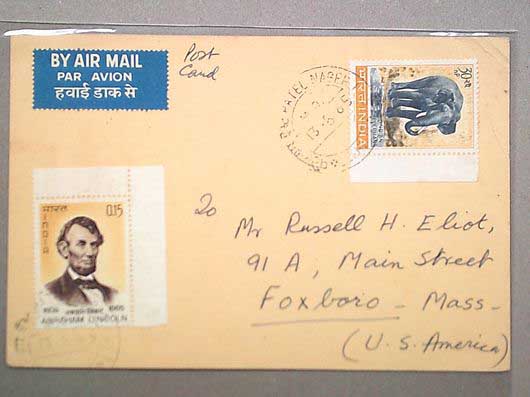 BY AIR MAIL
PAR AVION
हवाई डाक से
Post
Card
PATEL NAGAR
भारत INDIA
भारत
0.15
INDIA
1965
ABRAHAM LINCOLN
To
Mr Russell H. Eliot,
91 A, Main Street
Foxboro - Mass-
(U. S. America)